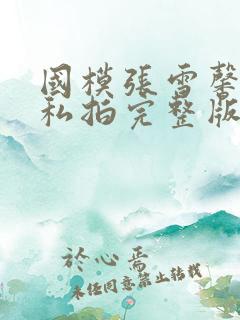 國模張雪馨
私拍完整版
於心焉
未经同意禁止转载